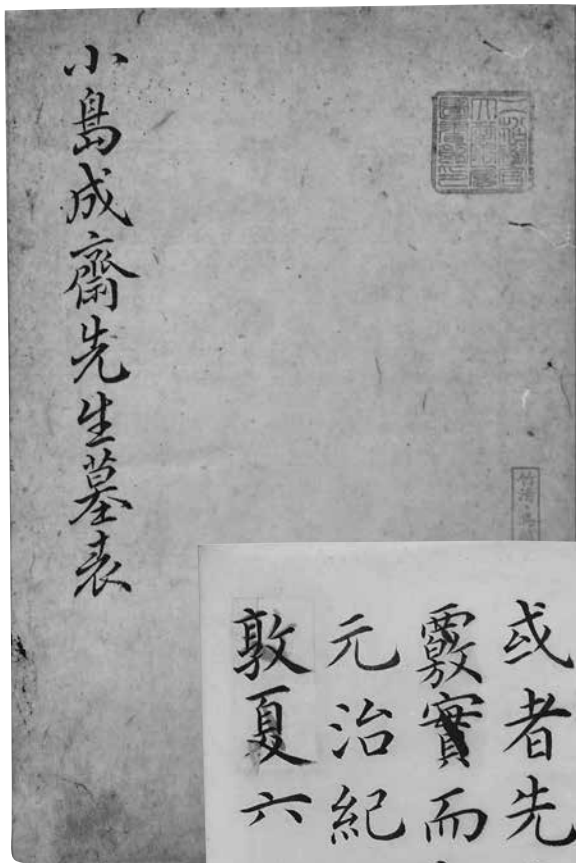 小島成齋先生墓表
或者先
覈實而
元治紀
敦夏六